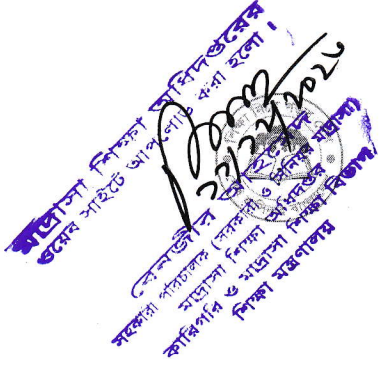 মাদ্রাসা শিক্ষা অধিদপ্তরের
ওয়েব সাইটে আপলোড করা হলো।
আহমেদ
সহকারী পরিচালক (সরকারী ও সিনিয়র মাদ্রাসা)
মাদ্রাসা শিক্ষা অধিদপ্তর
কারিগরি ও মাদ্রাসা শিক্ষা বিভাগ
শিক্ষা মন্ত্রণালয়